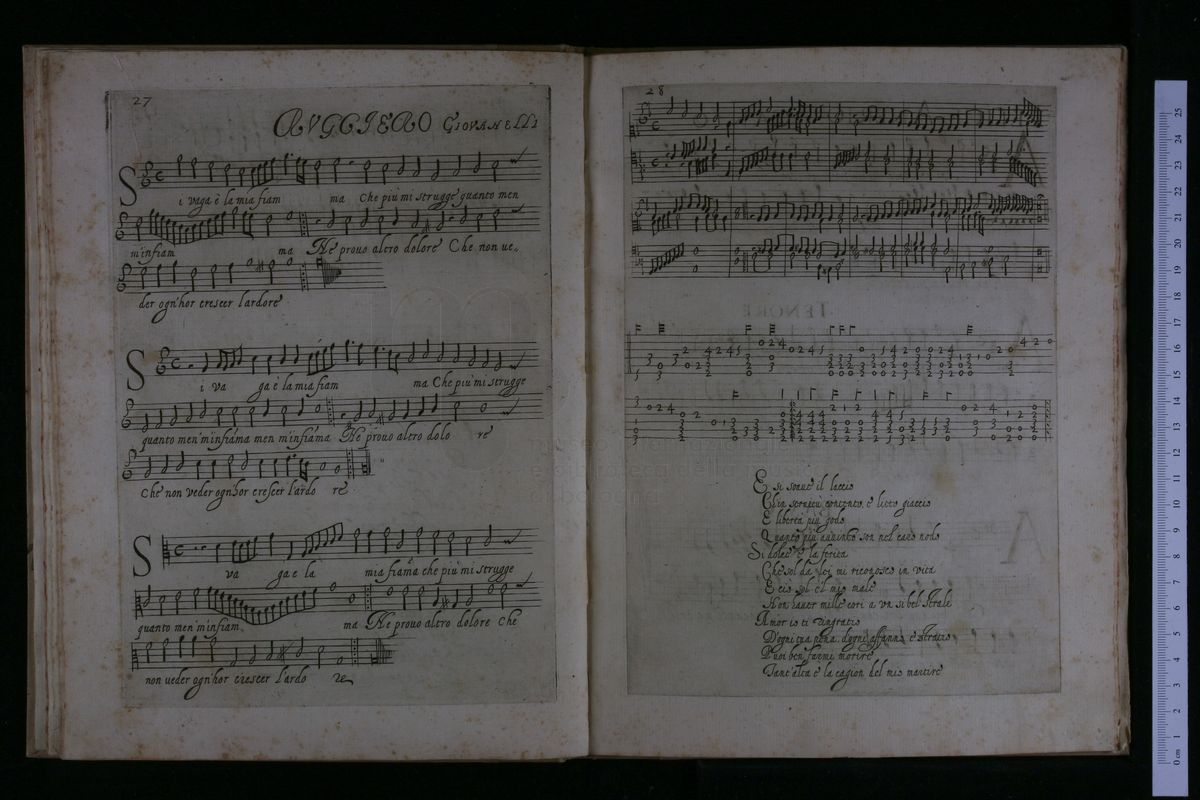 27
RVGGIERO GIOVANELLI
Si vaga è la mia fiam ma Che più mi strugge quanto men
m'infiam ma Ne prouo altro dolore Che non ue
der ogn'hor crescer l'ardore
Si va ga è la mia fiam ma Che più mi strugge
quanto men m'infiãma men m'infiãma Ne prouo altro dolo re
Che non veder ogn'hor crescer l'ardo re
S va ga e la mia fiam̃a che più mi strugge
quanto men m'infiam ma Ne prouo altro dolore Che
non ueder ogn'hor crescer l'ardo re
28
E si soaue il laccio
Ch'in seruitù contento, è lieto giaccio
E libertà più godo
Quanto più auuinto son nel caro nodo
Si dolce è la ferita
Che sol da lei mi riconosco in vita
E ciò sol è'l mio male
Non hauer mille cori a vn si bel strale
Amor io ti ringratio
D'ogni tua pena, d'ogni affanno, è stratio
Puoi ben farmi morire
Tant'alta è la cagion del mio martire
25
24
23
22
21
20
19
18
17
16
15
14
13
12
11
10
9
8
7
6
5
4
3
2
1
0 cm